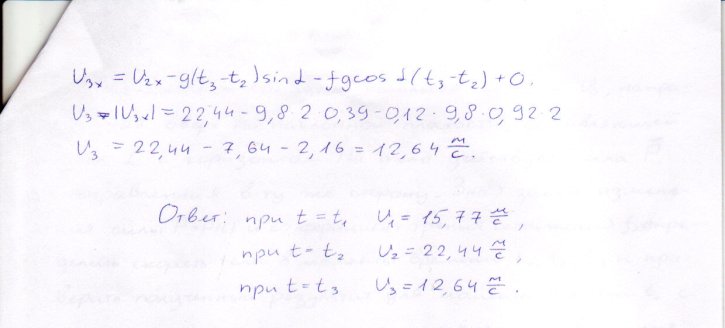 U₃ₓ = U₂ₓ - g(t₃-t₂)sinα - fgcosα(t₃-t₂) + 0.
U₃ = |U₃ₓ| = 22,44 - 9,8·2·0,39 - 0,12·9,8·0,92·2
U₃ = 22,44 - 7,64 - 2,16 = 12,64 м/с.
Ответ: при t = t₁ U₁ = 15,77 м/с,
при t = t₂ U₂ = 22,44 м/с
при t = t₃ U₃ = 12,64 м/с.